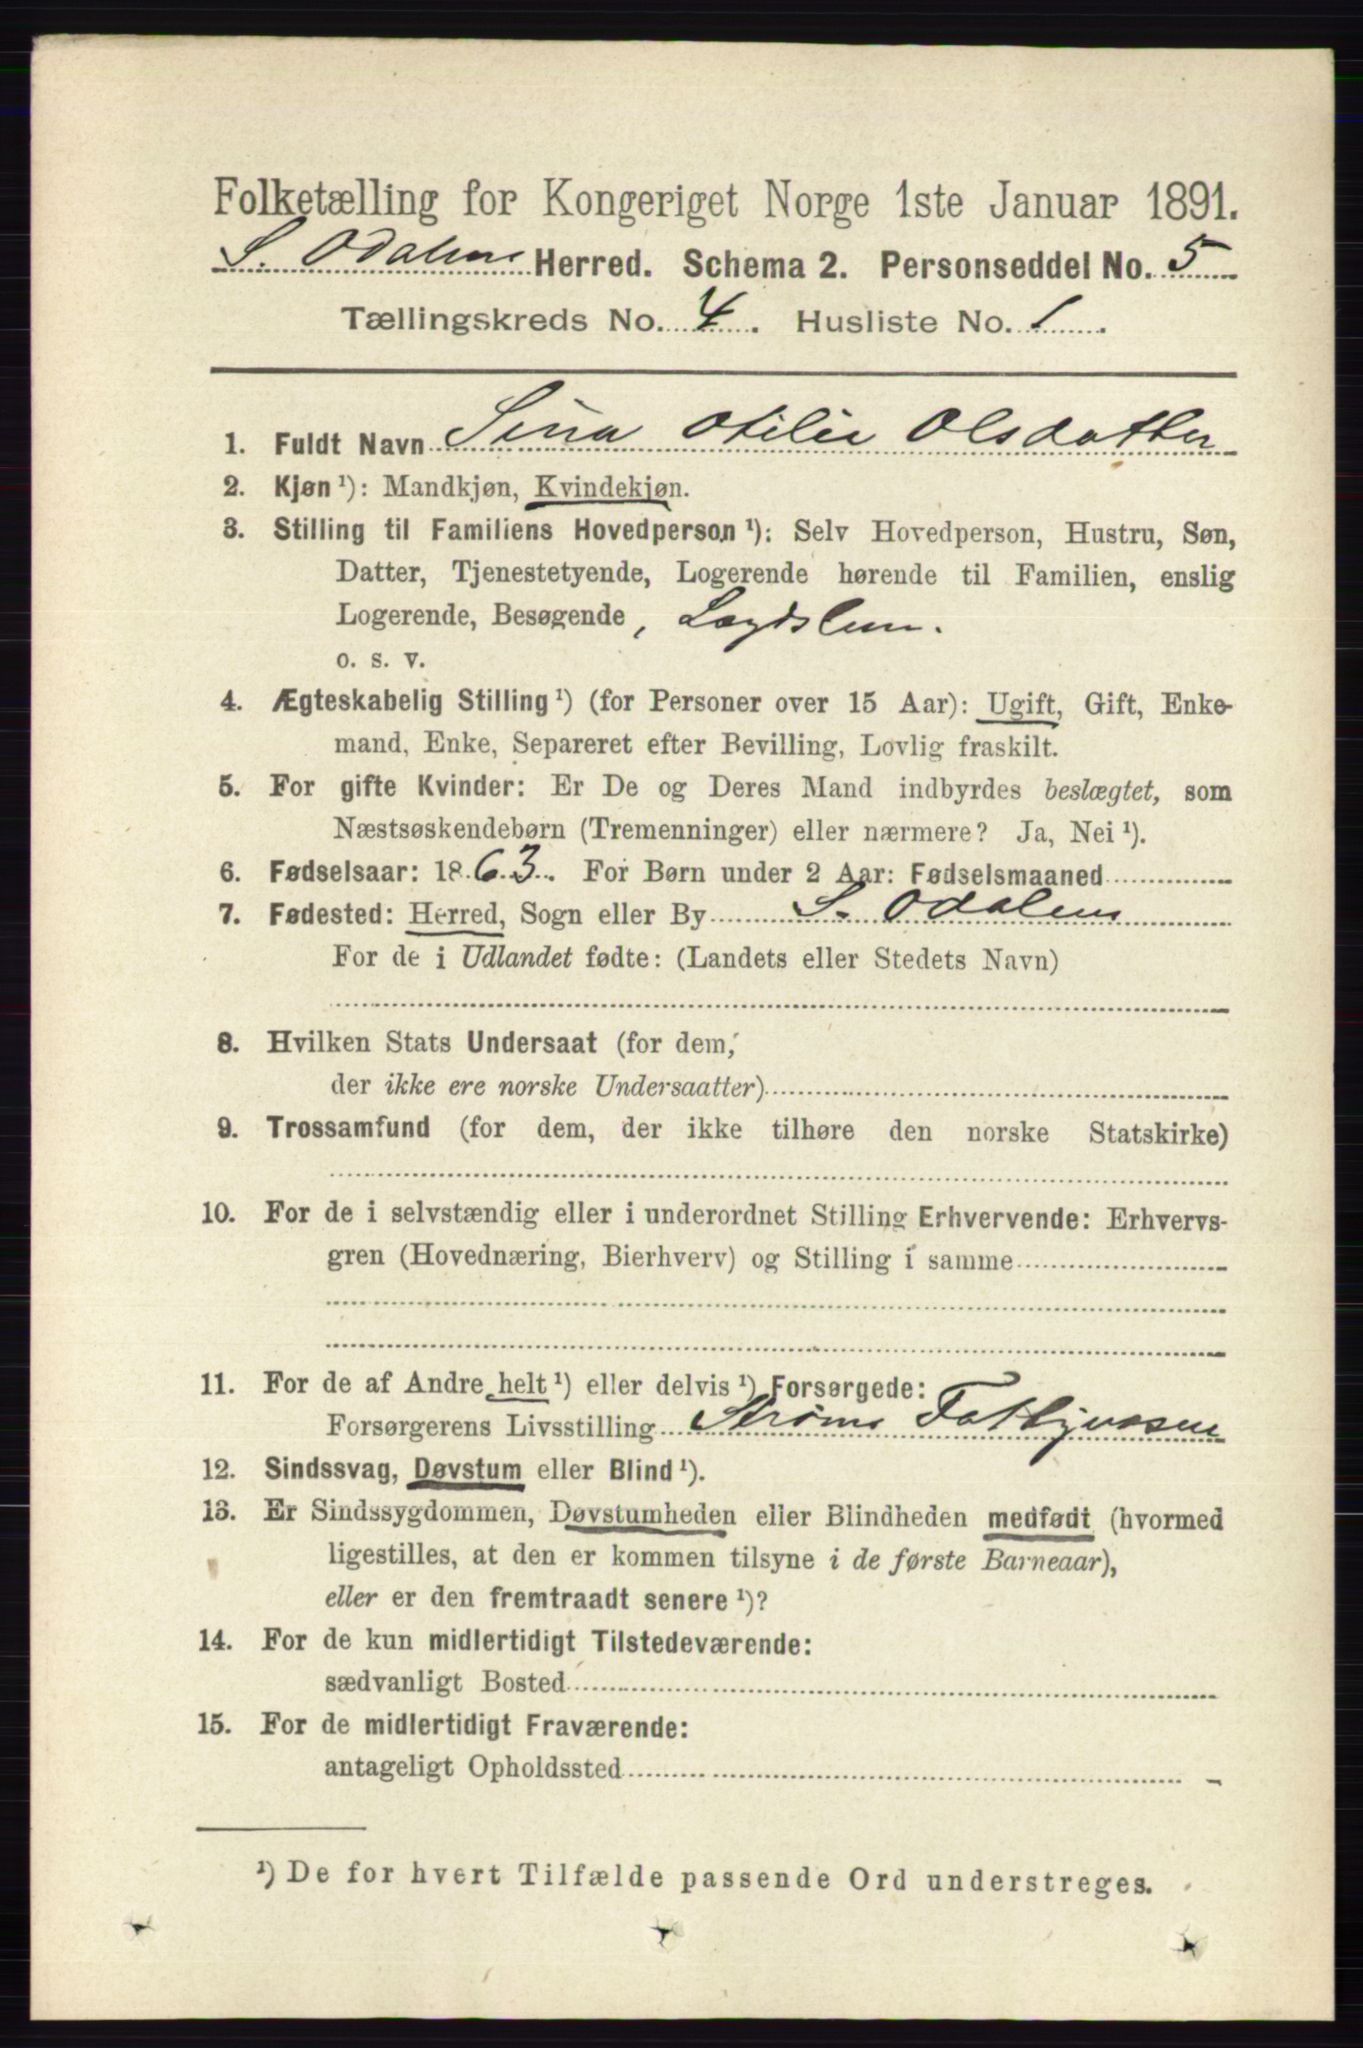 Folketælling for Kongeriget Norge 1ste Januar 1891.
S. Odalens Herred. Schema 2. Personseddel No. 5
Tællingskreds No. 4. Husliste No. 1.
1. Fuldt Navn Sina Otilie Olsdatter
2. Kjøn ¹): Mandkjøn, Kvindekjøn.
3. Stilling til Familiens Hovedperson ¹): Selv Hovedperson, Hustru, Søn,
Datter, Tjenestetyende, Logerende hørende til Familien, enslig
Logerende, Besøgende, Lægdslem.
o. s. v.
4. Ægteskabelig Stilling ¹) (for Personer over 15 Aar): Ugift, Gift, Enke-
mand, Enke, Separeret efter Bevilling, Lovlig fraskilt.
5. For gifte Kvinder: Er De og Deres Mand indbyrdes beslægtet, som
Næstsøskendebørn (Tremenninger) eller nærmere? Ja, Nei ¹).
6. Fødselsaar: 1863. For Børn under 2 Aar: Fødselsmaaned
7. Fødested: Herred, Sogn eller By S. Odalens
For de i Udlandet fødte: (Landets eller Stedets Navn)
8. Hvilken Stats Undersaat (for dem,
der ikke ere norske Undersaatter)
9. Trossamfund (for dem, der ikke tilhøre den norske Statskirke)
10. For de i selvstændig eller i underordnet Stilling Erhvervende: Erhvervs-
gren (Hovednæring, Bierhverv) og Stilling i samme
11. For de af Andre helt ¹) eller delvis ¹) Forsørgede:
Forsørgerens Livsstilling Strøms Fattigvæsen
12. Sindssvag, Døvstum eller Blind ¹).
13. Er Sindssygdommen, Døvstumheden eller Blindheden medfødt (hvormed
ligestilles, at den er kommen tilsyne i de første Barneaar),
eller er den fremtraadt senere ¹)?
14. For de kun midlertidigt Tilstedeværende:
sædvanligt Bosted
15. For de midlertidigt Fraværende:
antageligt Opholdssted
¹) De for hvert Tilfælde passende Ord understreges.